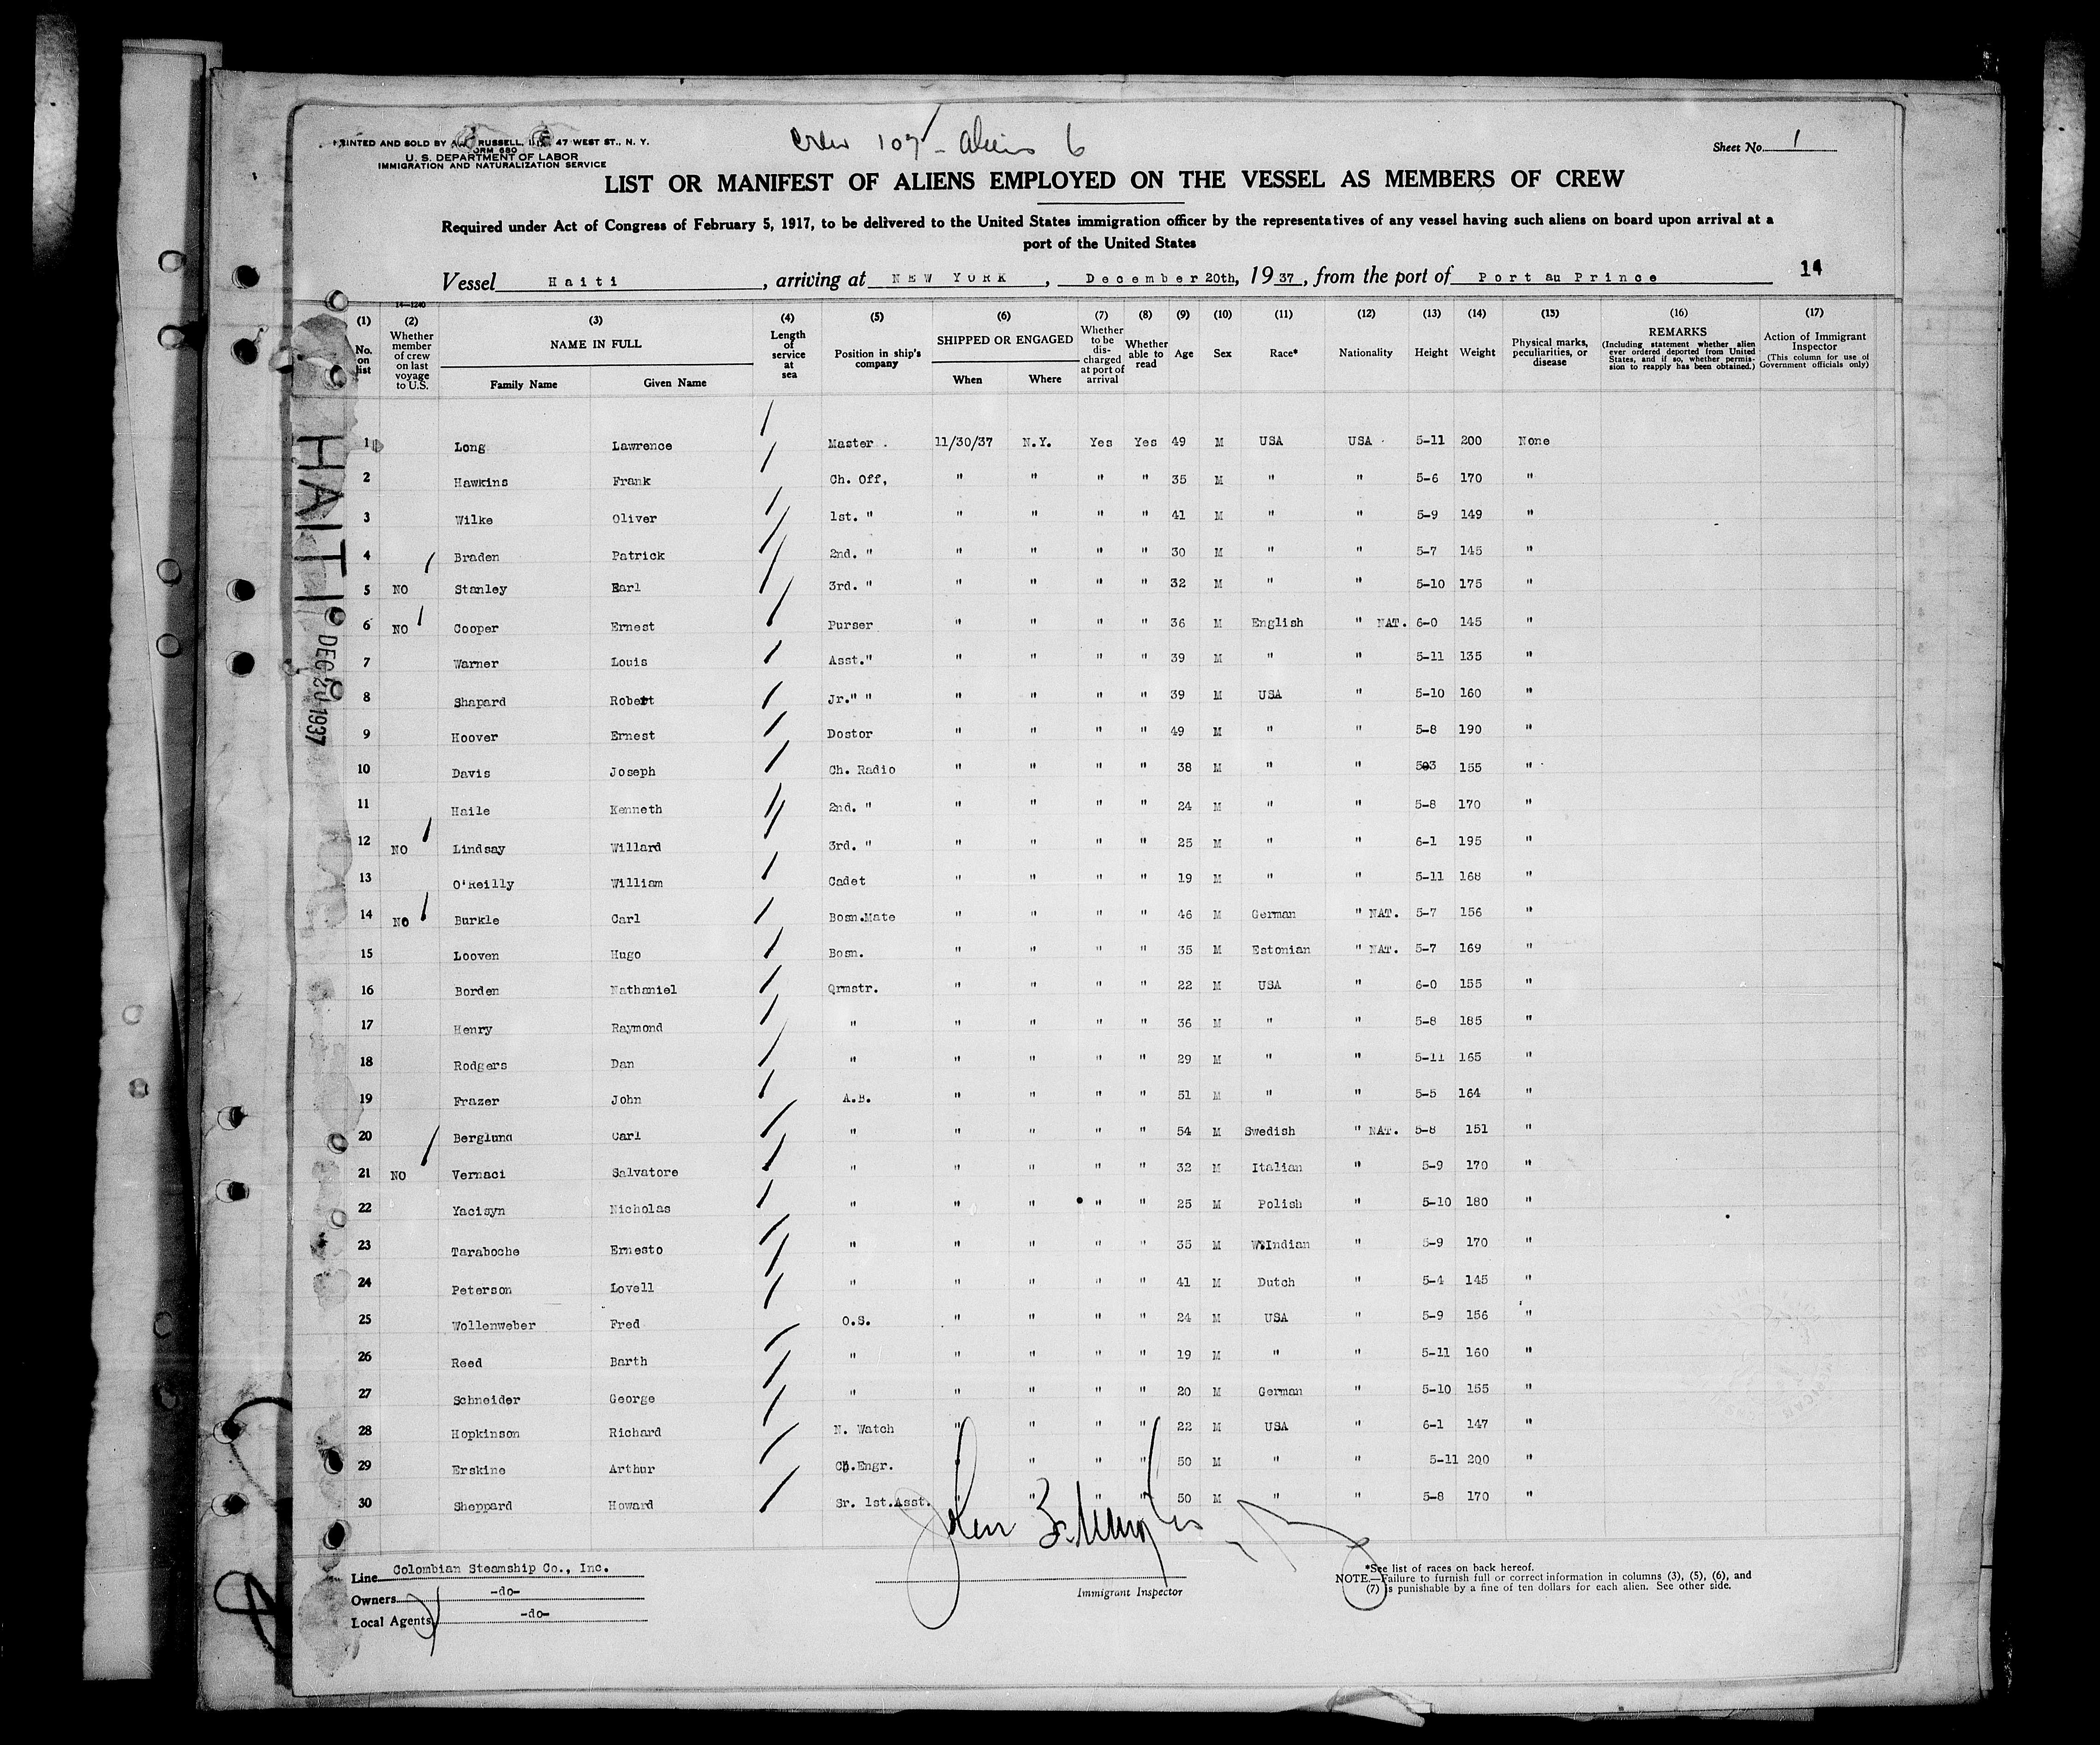 crew 107 - aliens 6
PRINTED AND SOLD BY RUSSELL, 47 WEST ST., N. Y.
FORM 680
U. S. DEPARTMENT OF LABOR
IMMIGRATION AND NATURALIZATION SERVICE
Sheet No. 1
LIST OR MANIFEST OF ALIENS EMPLOYED ON THE VESSEL AS MEMBERS OF CREW
Required under Act of Congress of February 5, 1917, to be delivered to the United States immigration officer by the representatives of any vessel having such aliens on board upon arrival at a
port of the United States
Vessel Haiti, arriving at NEW YORK, December 20th, 1937, from the port of Port au Prince
14
14-1240
(1) No. on list
(2) Whether member of crew on last voyage to U.S.
(3) NAME IN FULL Family Name Given Name
(4) Length of service at sea
(5) Position in ship's company
(6) SHIPPED OR ENGAGED When Where
(7) Whether to be discharged at port of arrival
(8) Whether able to read
(9) Age
(10) Sex
(11) Race*
(12) Nationality
(13) Height
(14) Weight
(15) Physical marks, peculiarities, or disease
(16) REMARKS (Including statement whether alien ever ordered deported from United States, and if so, whether permission to reapply has been obtained.)
(17) Action of Immigrant Inspector (This column for use of Government officials only)
1 Long Lawrence Master 11/30/37 N.Y. Yes Yes 49 M USA USA 5-11 200 None
2 Hawkins Frank Ch. Off, " " " " 35 M " " 5-6 170 "
3 Wilke Oliver 1st. " " " " " 41 M " " 5-9 149 "
4 Braden Patrick 2nd. " " " " " 30 M " " 5-7 145 "
5 NO Stanley Earl 3rd. " " " " " 32 M " " 5-10 175 "
6 NO Cooper Ernest Purser " " " " 36 M English " NAT. 6-0 145 "
7 Warner Louis Asst." " " " " 39 M " " 5-11 135 "
8 Shapard Robert Jr." " " " " " 39 M USA " 5-10 160 "
9 Hoover Ernest Dostor " " " " 49 M " " 5-8 190 "
10 Davis Joseph Ch. Radio " " " " 38 M " " 5-3 155 "
11 Haile Kenneth 2nd. " " " " " 24 M " " 5-8 170 "
12 NO Lindsay Willard 3rd. " " " " " 25 M " " 6-1 195 "
13 O'Reilly William Cadet " " " " 19 M " " 5-11 168 "
14 NO Burkle Carl Bosn.Mate " " " " 46 M German " NAT. 5-7 156 "
15 Looven Hugo Bosn. " " " " 35 M Estonian " NAT. 5-7 169 "
16 Borden Nathaniel Qrmstr. " " " " 22 M USA " 6-0 155 "
17 Henry Raymond " " " " " 36 M " " 5-8 185 "
18 Rodgers Dan " " " " " 29 M " " 5-11 165 "
19 Frazer John A.B. " " " " 51 M " " 5-5 164 "
20 Berglund Carl " " " " " 54 M Swedish " NAT. 5-8 151 "
21 NO Vernaci Salvatore " " " " " 32 M Italian " 5-9 170 "
22 Yacisyn Nicholas " " " " " 25 M Polish " 5-10 180 "
23 Taraboche Ernesto " " " " " 35 M W.Indian " 5-9 170 "
24 Peterson Lovell " " " " " 41 M Dutch " 5-4 145 "
25 Wollenweber Fred O.S. " " " " 24 M USA " 5-9 156 "
26 Reed Barth " " " " " 19 M " " 5-11 160 "
27 Schneider George " " " " " 20 M German " 5-10 155 "
28 Hopkinson Richard N. Watch " " " " 22 M USA " 6-1 147 "
29 Erskine Arthur Ch.Engr. " " " " 50 M " " 5-11 200 "
30 Sheppard Howard Sr. 1st.Asst. " " " " 50 M " " 5-8 170 "
HAITI
DEC 20 1937
Line Colombian Steamship Co., Inc.
Owners -do-
Local Agents -do-
John
Immigrant Inspector
*See list of races on back hereof.
NOTE.—Failure to furnish full or correct information in columns (3), (5), (6), and
(7) is punishable by a fine of ten dollars for each alien. See other side.